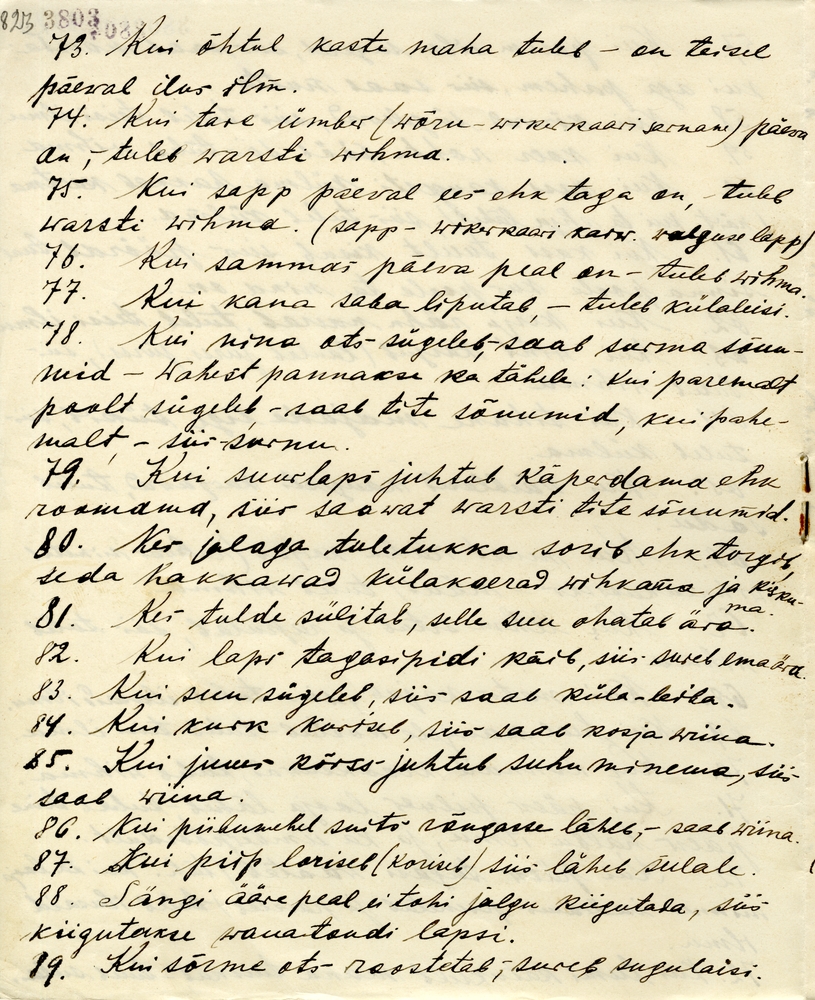 823 3803
73. Kui õhtul kaste maha tuleb – on teisel
päeval ilus ilm.
74. Kui tare ümber (wõru – wikerkaari sarnane) päeva
on, – tuleb warsti wihma.
75. Kui sapp päeval ees ehk taga on, – tuleb
warsti wihma. (sapp – wikerkaari karw. walguse lapp)
76. Kui sammas päeva peal on – tuleb wihma.
77. Kui kana saba liputab, – tuleb külalisi.
78. Kui nina ots sügeleb, – saab surma sõnu-
mid – Wahest pannakse ka tähele: kui paremalt
poolt sügeleb, – saab tite sõnumid, kui pahe-
malt, – siis surnu.
79. Kui suurlaps juhtub käperdama ehk
roomama, siis saawat warsti tite sõnumid.
80. Kes jalaga tuletukka sorib ehk torgib,
seda hakkawad külakoerad wihkama ja kisku-
ma.
81. Kes tulde sülitab, selle suu ohatab ära.
82. Kui laps tagasipidi käib, siis sureb ema ära.
83. Kui suu sügeleb, siis saab küla-leiba.
84. Kui kurk kuriseb, siis saab kosja wiina.
85. Kui juus kõrss juhtub suhu minema, siis
saab wiina.
86. Kui piibumehel suits rõngasse läheb, – saab wiina.
87. Kui piip loriseb (koriseb) siis läheb sulale.
88. Sängi ääre peal ei tohi jalgu kiigutada, siis
kiigutakse wanatondi lapsi.
89. Kui sõrme ots roostetab, – sureb sugulaisi.